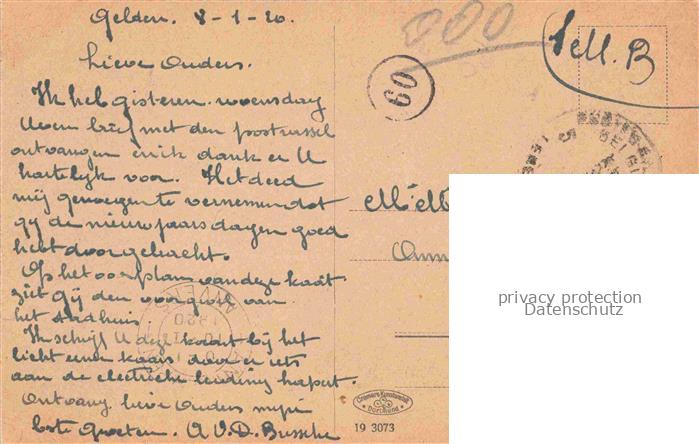 Gelden. 8-1-20.
Lieve Ouders.
Ik heb gisteren woensdag
Uwen brief met den postwissel
ontvangen en ik dank er U
hartelijk voor. Het deed
mij genoegen te vernemen dat
gij de nieuwjaarsdagen goed
hebt doorgebracht.
Op het voorplan van deze kaart
ziet gij den voorgevel van
het stadhuis.
Ik schrijf U deze kaart bij het
licht eener kaars daar er iets
aan de electrische leiding hapert.
Ontvang lieve Ouders mijne
beste groeten. A V.D. Bussche
60
S.M.B
privacy protection
Datenschutz
Cramers Kunstanstalt
Dortmund
19 3073